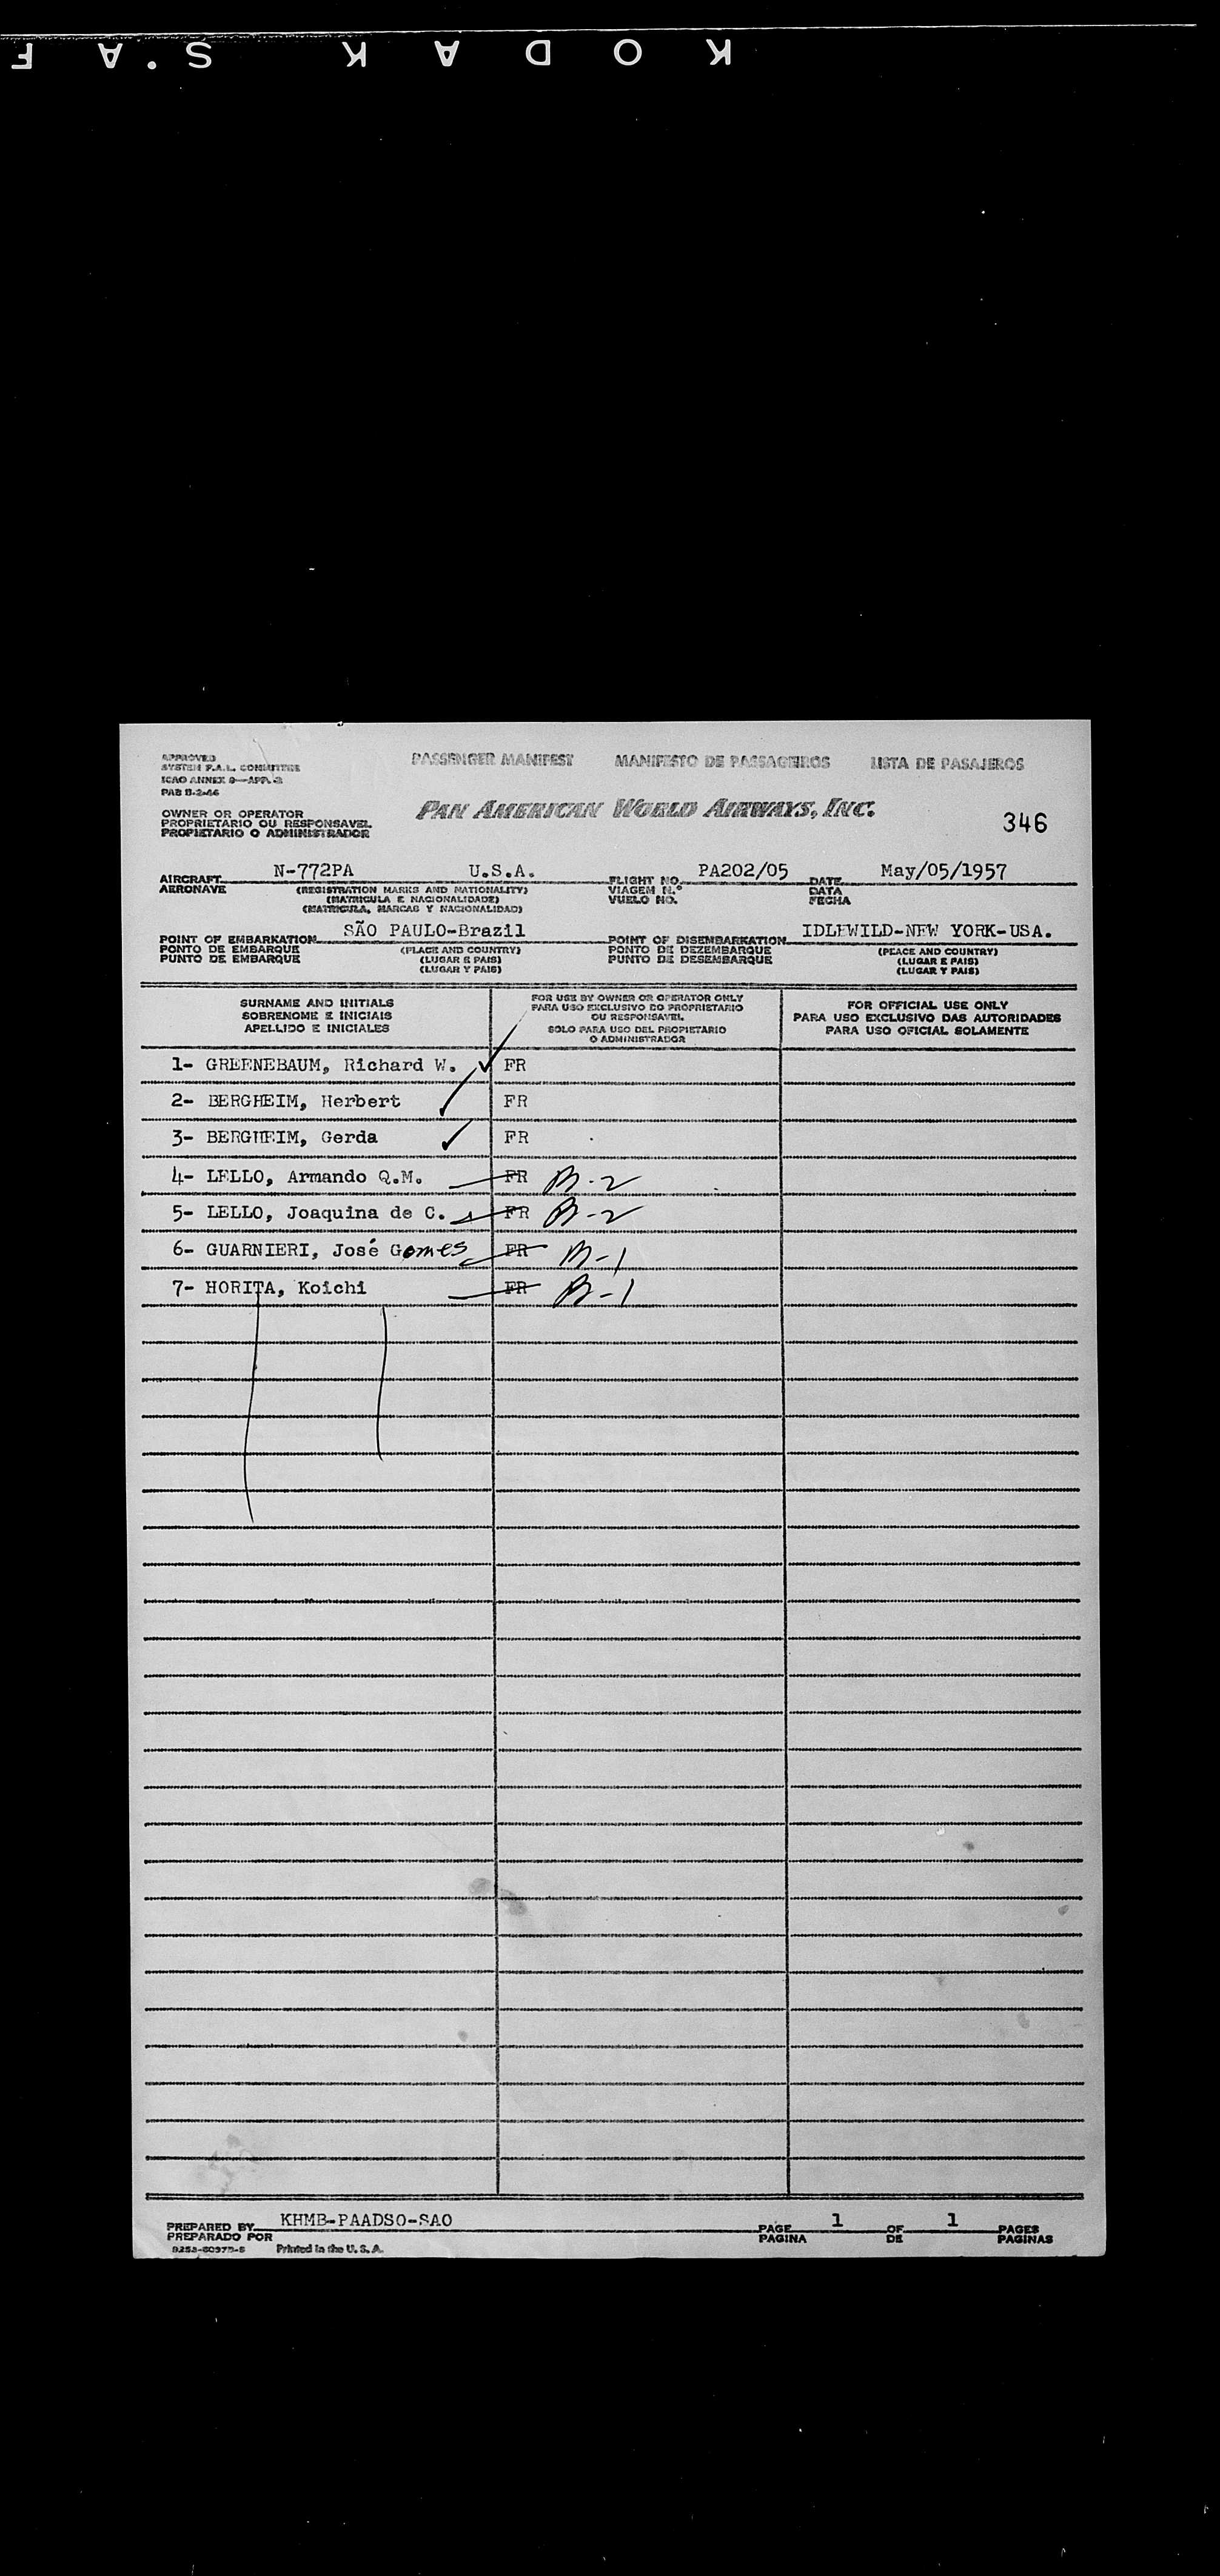 KODAK S.AF
APPROVED
SYSTEM F.A.L. COMMITTEE
ICAO ANNEX 9—APP. 2
PAB 8-2-46
PASSENGER MANIFEST MANIFESTO DE PASSAGEIROS LISTA DE PASAJEROS
PAN AMERICAN WORLD AIRWAYS, INC.
346
OWNER OR OPERATOR
PROPRIETARIO OU RESPONSAVEL
PROPIETARIO O ADMINISTRADOR
AIRCRAFT N-772PA U.S.A. FLIGHT NO. PA202/05 DATE May/05/1957
AERONAVE (REGISTRATION MARKS AND NATIONALITY) VIAGEM N.º DATA
(MATRICULA E NACIONALIDADE) VUELO NO. FECHA
(MATRICULA, MARCAS Y NACIONALIDAD)
POINT OF EMBARKATION SÃO PAULO-Brazil POINT OF DISEMBARKATION IDLEWILD-NEW YORK-USA.
PONTO DE EMBARQUE (PLACE AND COUNTRY) PONTO DE DEZEMBARQUE (PEACE AND COUNTRY)
PUNTO DE EMBARQUE (LUGAR E PAIS) PUNTO DE DESEMBARQUE (LUGAR E PAIS)
(LUGAR Y PAIS) (LUGAR Y PAIS)
SURNAME AND INITIALS
SOBRENOME E INICIAIS
APELLIDO E INICIALES
FOR USE BY OWNER OR OPERATOR ONLY
PARA USO EXCLUSIVO DO PROPRIETARIO
OU RESPONSAVEL
SOLO PARA USO DEL PROPIETARIO
O ADMINISTRADOR
FOR OFFICIAL USE ONLY
PARA USO EXCLUSIVO DAS AUTORIDADES
PARA USO OFICIAL SOLAMENTE
1- GREENEBAUM, Richard W. FR
2- BERGHEIM, Herbert FR
3- BERGHEIM, Gerda FR
4- LELLO, Armando Q.M. FR B-2
5- LELLO, Joaquina de C. FR B-2
6- GUARNIERI, José Gomes FR B-1
7- HORITA, Koichi FR B-1
PREPARED BY KHMB-PAADSO-SAO PAGE 1 OF 1 PAGES
PREPARADO POR PAGINA DE PAGINAS
Printed in the U. S. A.